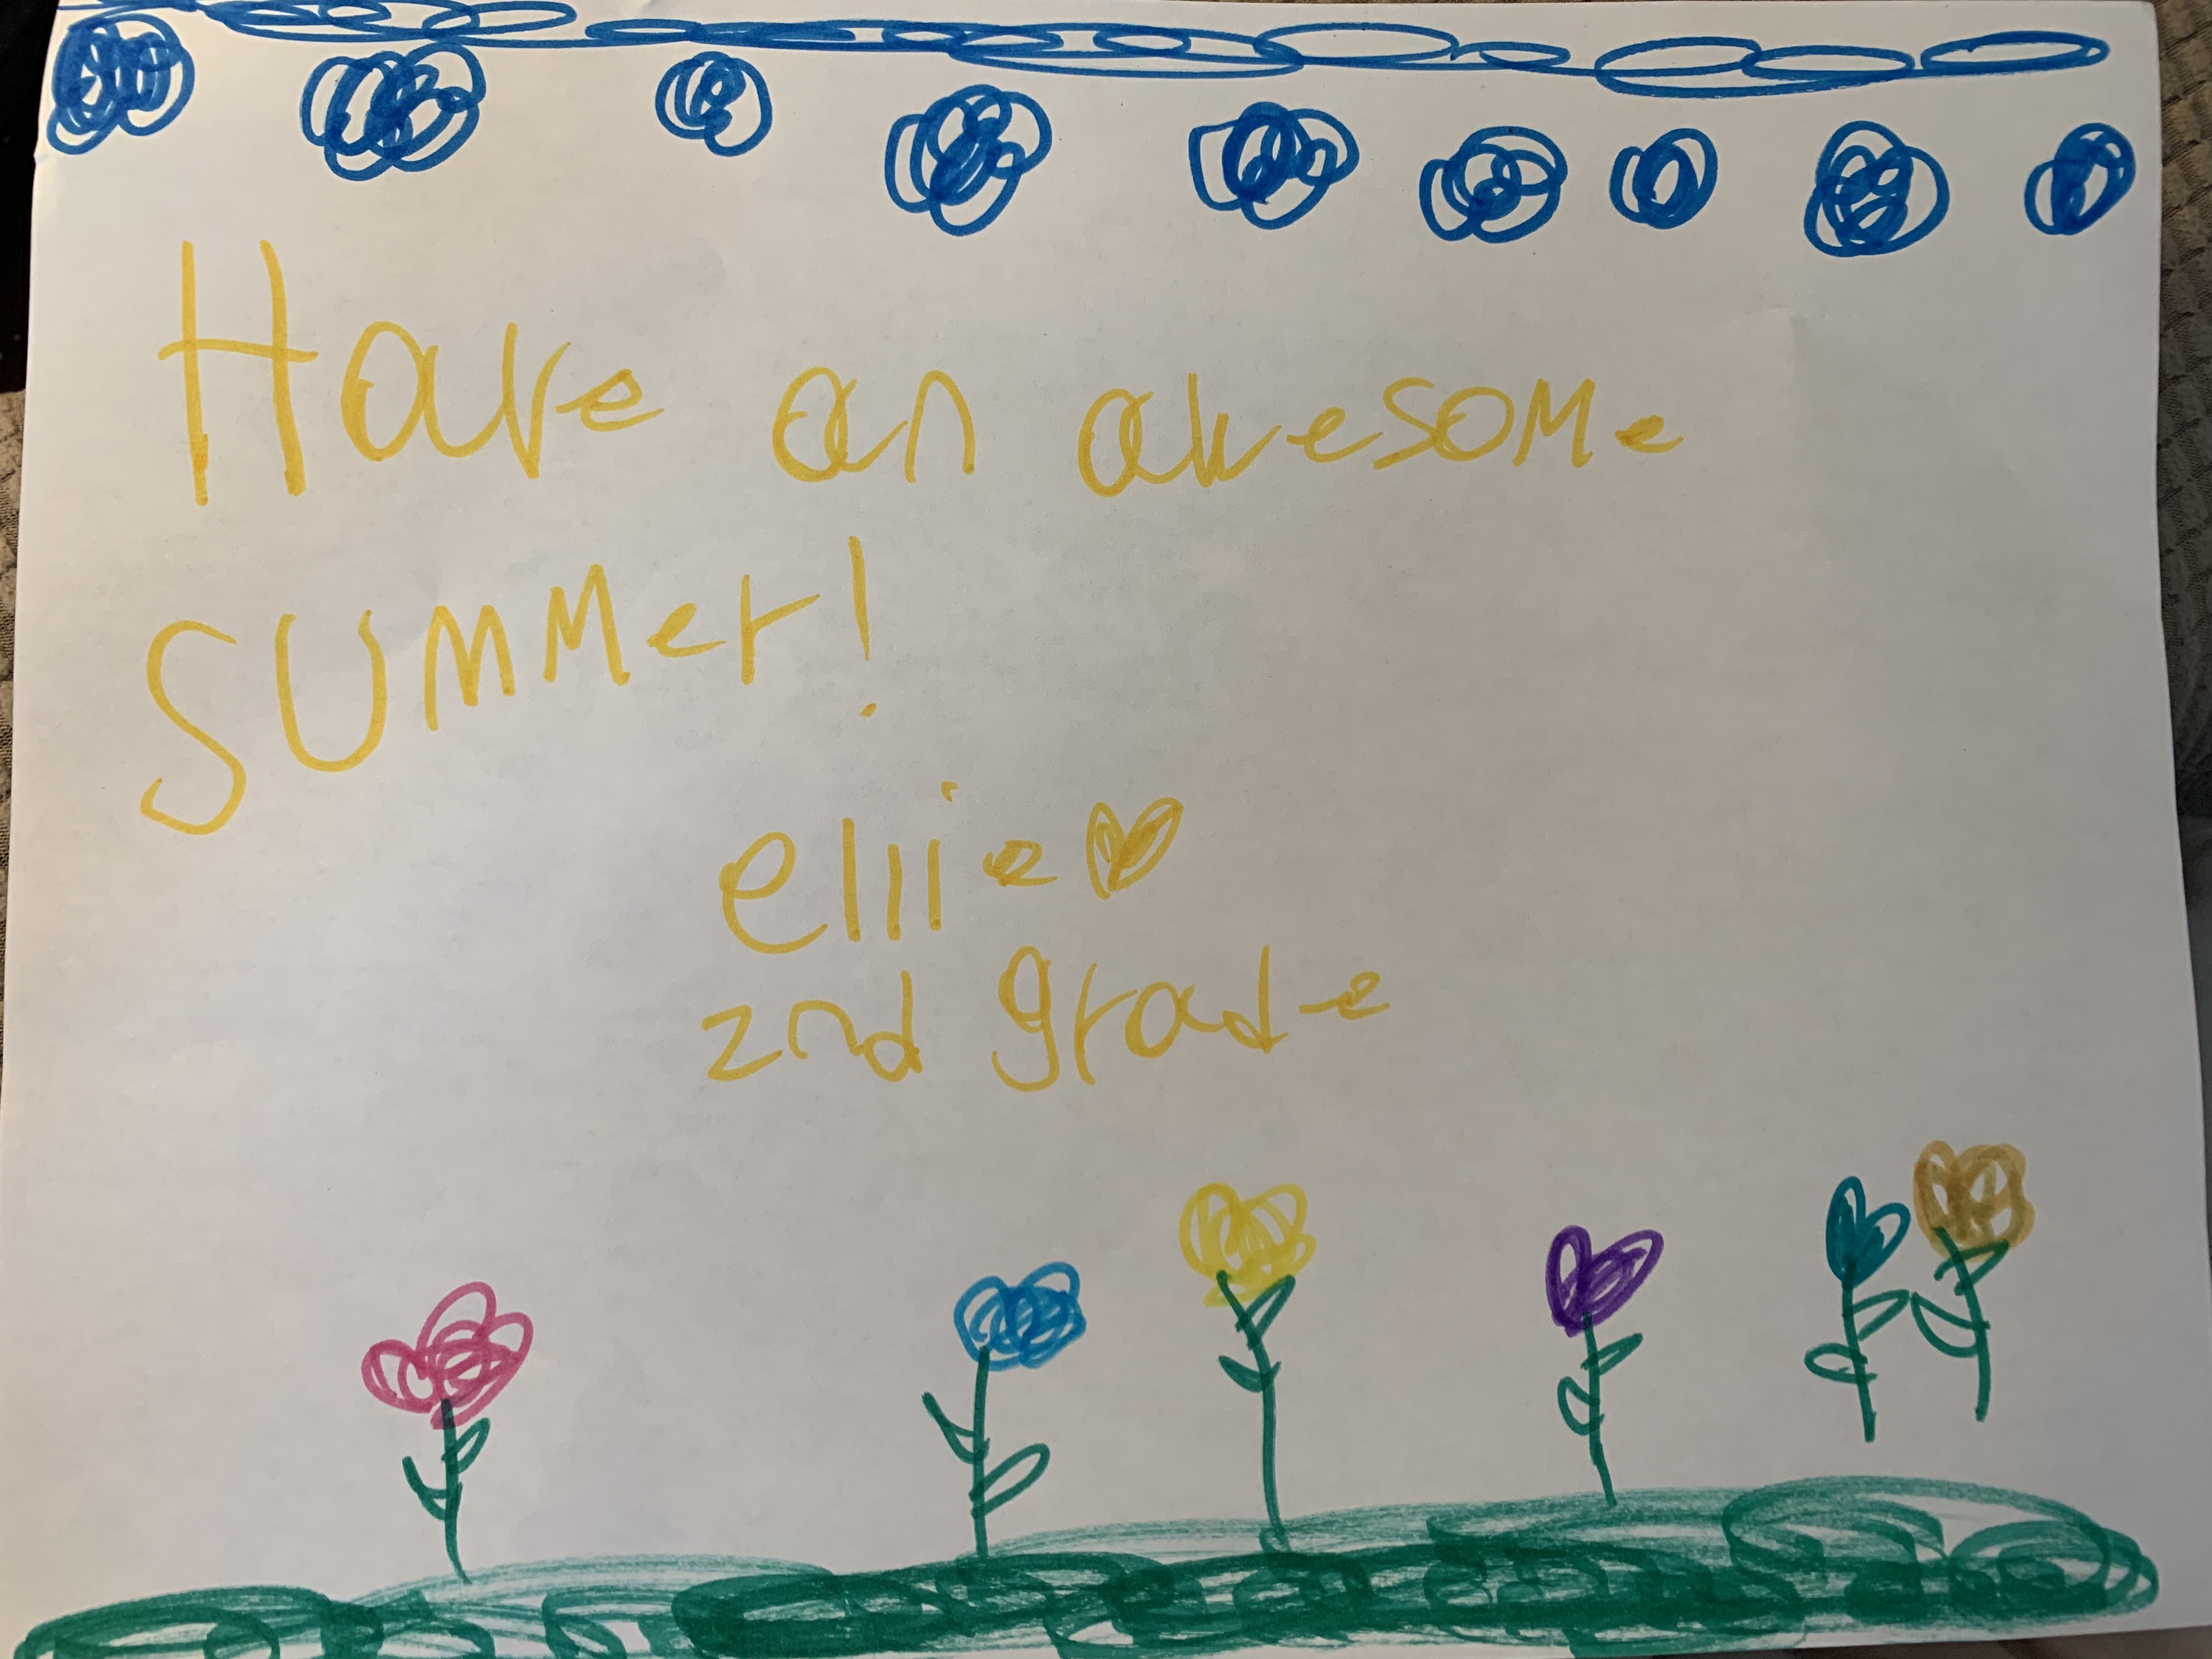 Have an awesome
summer!
ellie
2nd grade